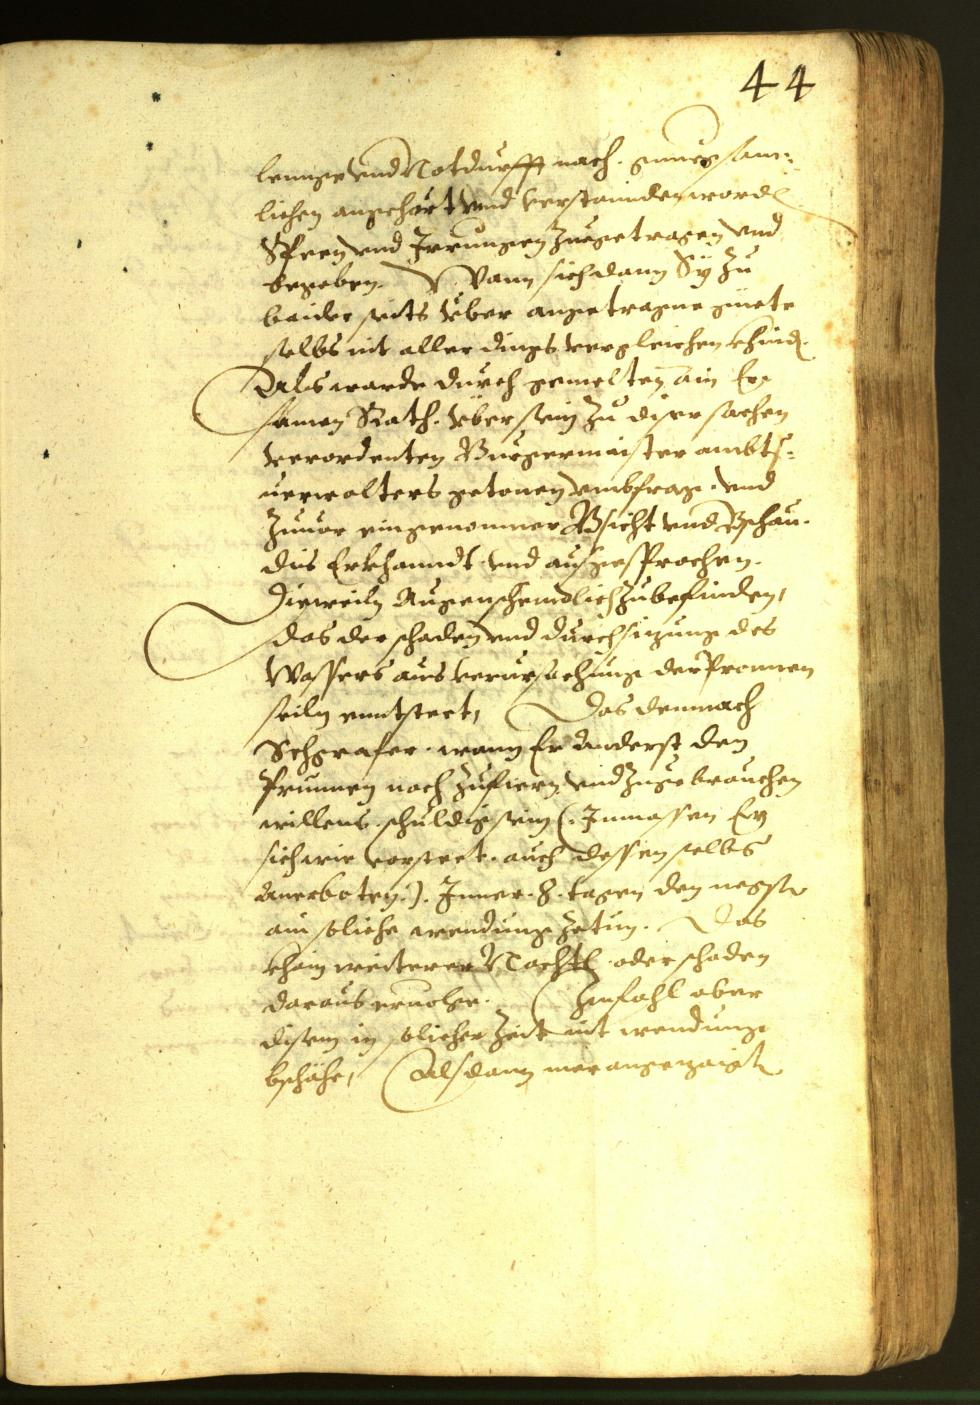 44
lennge vnd Notdurfft nach. gnuegsam-
lichen angehört vnd verstannden worden
Speen vnd Irrungen zuegetragen vnd
begeben. Wann sich dann Sÿ zu
baider seits über angetragne güete
selbs nit aller dings vergleichen khünd.
Als warde durch gemelten ain Er
samen Rath. über sein zu diser sachen
verordenten Burgermaister ambts-
verwalters getonen vmbfrag. vnd
zuuor eingenomner Bsicht vnd Bschau.
dis Erkhanndt vnd ausgesprochen.
Dieweiln Augenscheindlich zubefinden,
das der schaden vnd durchsizung des
Wassers aus verursachung der Pronnen
seiln enntsteet, Das demnach
Schgrafer. wann Er anderst den
Prunnen nach zufiern vnd zugebrauchen
willens. schuldig sein (. Inmassen Er
sich wie vorsteet. auch dessen selbs
anerboten.). Inner. 8. tagen den negsten
ain soliche wendung zetun. Das
khain weiterer Nachtl. oder schaden
daraus ernolge. Imfahl aber
disem in solicher Zeit nit wendung
bschähe, Alsdann mer angezaigt